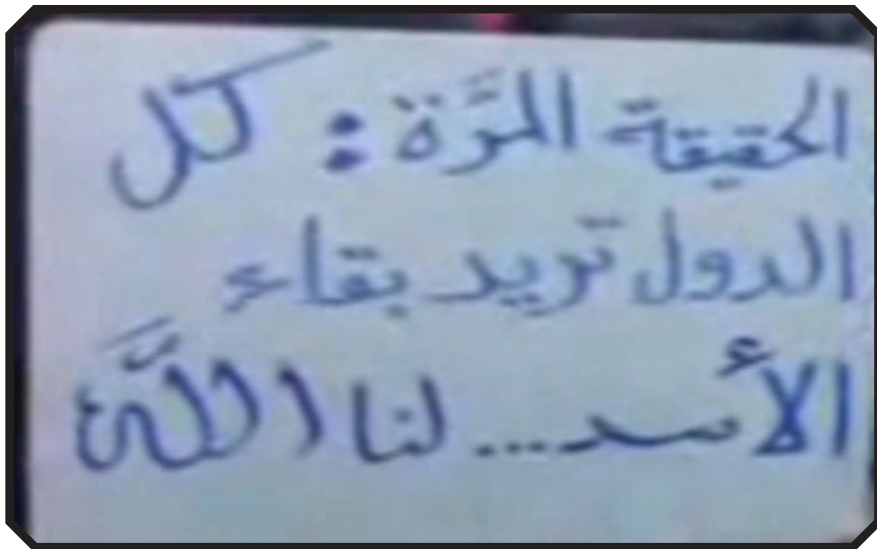 الحقيقة المرَّة : كل
الدول تريد بقاء
الأسد... لنا اللَّه